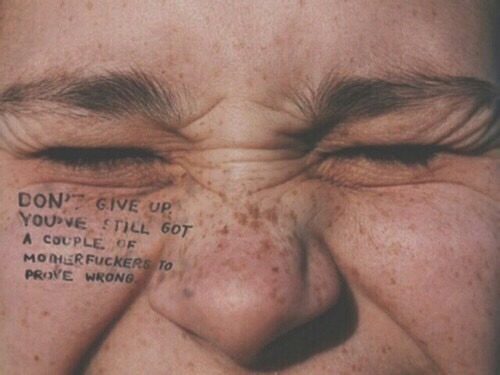 DON'T GIVE UP
YOU'VE STILL GOT
A COUPLE OF
MOTHERFUCKERS TO
PROVE WRONG.